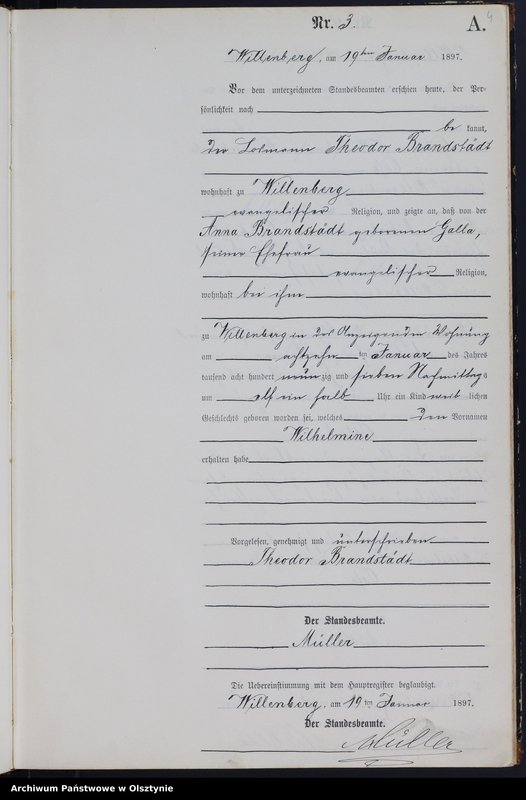 Nr. 3.
A.
4
Willenberg, am 19ten Januar 1897.
Vor dem unterzeichneten Standesbeamten erschien heute, der Per-
sönlichkeit nach
be kannt,
der Losmann Theodor Brandstädt
wohnhaft zu Willenberg
evangelischer Religion, und zeigte an, daß von der
Anna Brandstädt geborenen Galla,
seiner Ehefrau
evangelischer Religion,
wohnhaft bei ihm
zu Willenberg in des Anzeigenden Wohnung
am achtzehn ten Januar des Jahres
tausend acht hundert neunzig und sieben Nachmittags
um elf ein halb Uhr ein Kind weib lichen
Geschlechts geboren worden sei, welches den Vornamen
Wilhelmine
erhalten habe
Vorgelesen, genehmigt und unterschrieben
Theodor Brandstädt
Der Standesbeamte.
Müller
Die Uebereinstimmung mit dem Hauptregister beglaubigt.
Willenberg, am 19 ten Januar 1897.
Der Standesbeamte.
Müller
Archiwum Państwowe w Olsztynie